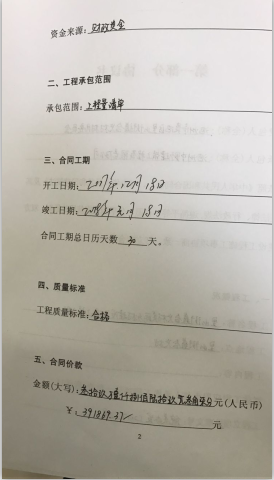 资金来源：财政资金
二、工程承包范围
承包范围：工程量清单
三、合同工期
开工日期：2017年12月18日
竣工日期：2018年元月18日
合同工期总日历天数 30 天。
四、质量标准
工程质量标准：合格
五、合同价款
金额(大写)：叁拾玖万壹仟捌佰陆拾玖元叁角柒分元(人民币)
￥：391869.37元
2